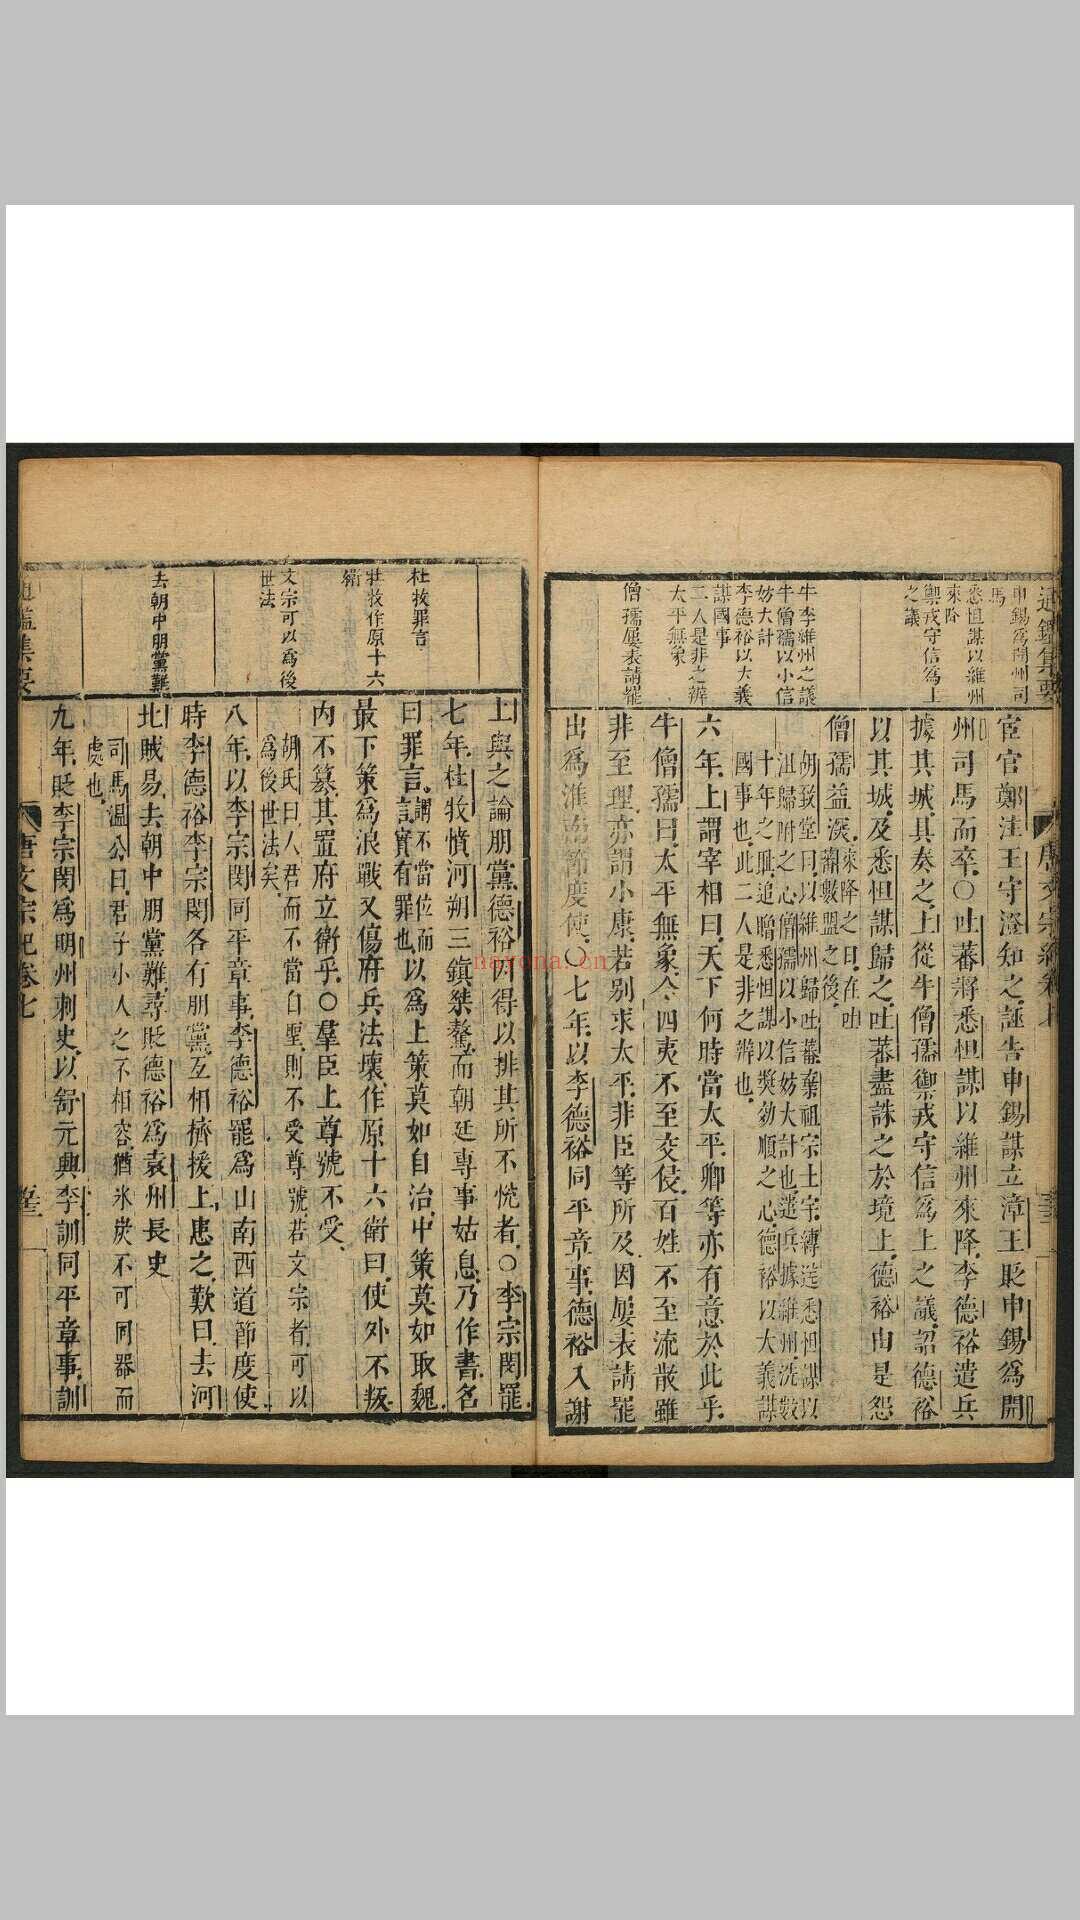 通鑑集要
申錫為開州司
馬
悉怛謀以維州
來降
禦戎守信爲上
之議
牛李維州之議
牛僧孺以小信
妨大計
李德裕以大義
謀國事
二人是非之辨
太平無象
僧孺屢表請罷
宦官鄭注王守澄知之誣告申錫謀立漳王貶申錫爲開
州司馬而卒○吐蕃將悉怛謀以維州來降李德裕遣兵
據其城具奏之上從牛僧孺禦戎守信爲上之議詔德裕
以其城及悉怛謀歸之吐蕃盡誅之於境上德裕由是怨
僧孺益深來降之日在吐
蕃數盟之後
胡致堂曰以維州歸吐蕃棄祖宗土宇縛送悉怛謀以
沮歸附之心僧孺以小信妨大計也遣兵據維州洗數
十年之恥追贈悉怛謀以獎効順之心德裕以大義謀
國事也此二人是非之辨也
六年上謂宰相曰天下何時當太平卿等亦有意於此乎
牛僧孺曰太平無象今四夷不至交侵百姓不至流散雖
非至理亦謂小康若别求太平非臣等所及因屢表請罷
出爲淮南節度使○七年以李德裕同平章事德裕入謝
杜牧罪言
杜牧作原十六
衛
文宗可以爲後
世法
去朝中朋黨難
上與之論朋黨德裕因得以排其所不悅者○李宗閔罷
七年杜牧憤河朔三鎮桀驁而朝廷專事姑息乃作書名
曰罪言謂不當位而
言實有罪也以爲上策莫如自治中策莫如取魏
最下策爲浪戰又傷府兵法壞作原十六衛曰使外不叛
内不篡其置府立衛乎○羣臣上尊號不受
胡氏曰人君而不當自聖則不受尊號若文宗者可以
爲後世法矣
八年以李宗閔同平章事李德裕罷爲山南西道節度使
時李德裕李宗閔各有朋黨互相擠援上患之歎曰去河
北賊易去朝中朋黨難尋貶德裕爲袁州長史
司馬溫公曰君子小人之不相容猶氷炭不可同器而
處也
九年貶李宗閔爲明州刺史以舒元輿李訓同平章事訓
通鑑集要
唐文宗紀卷七